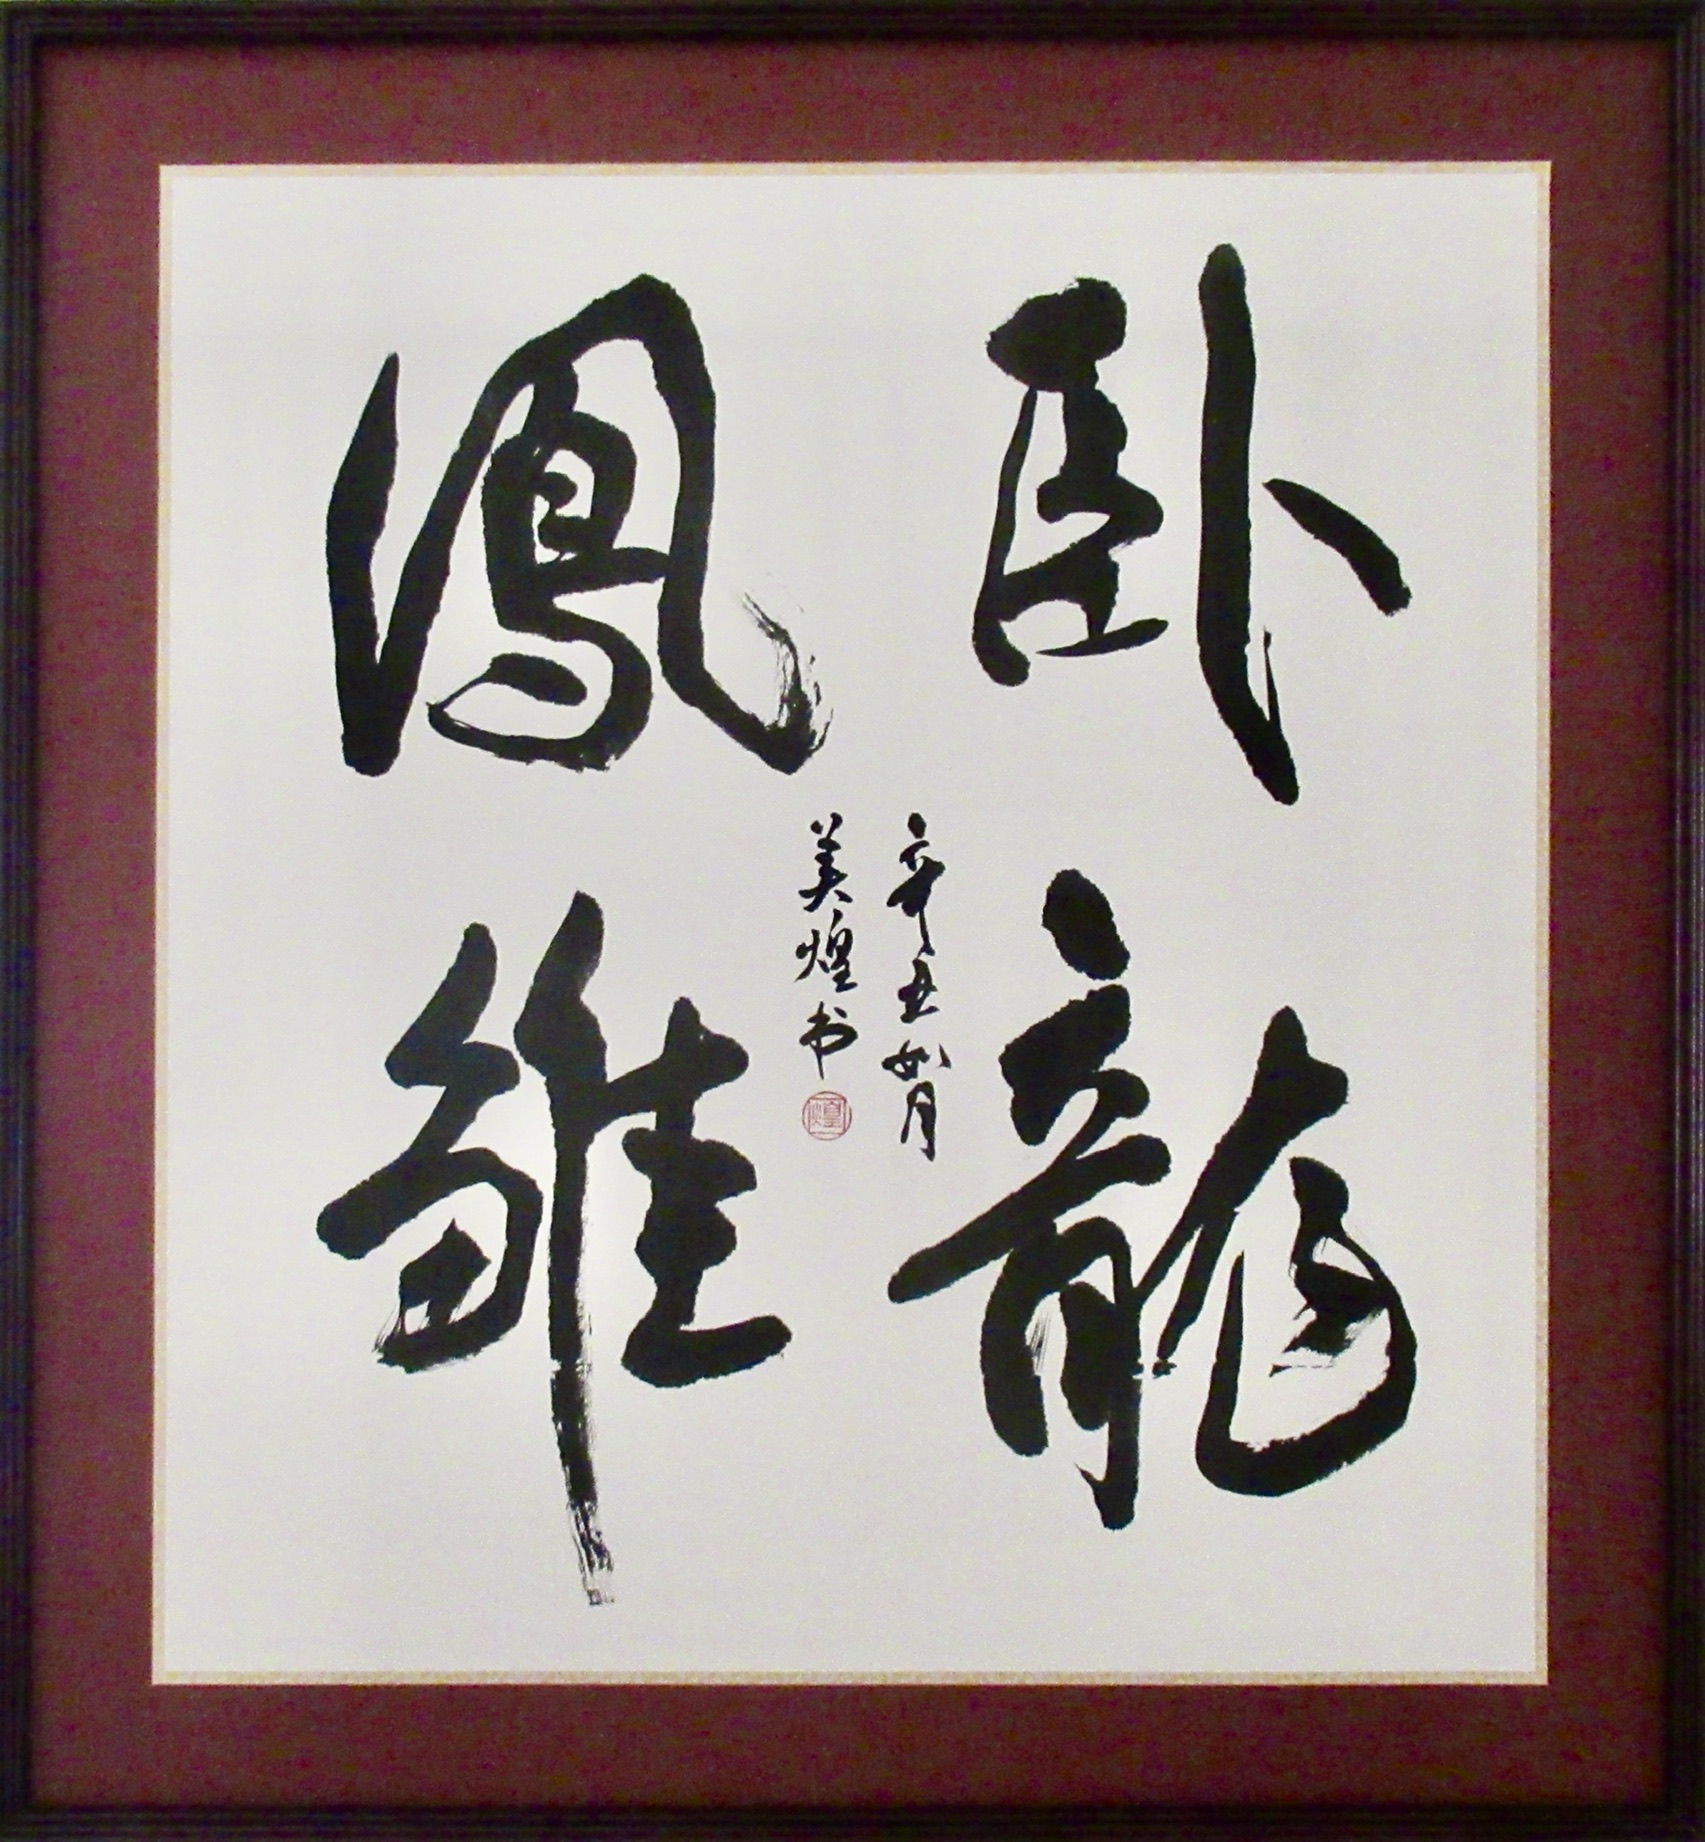 卧龍
鳳雛
辛丑如月
美煌书
煌